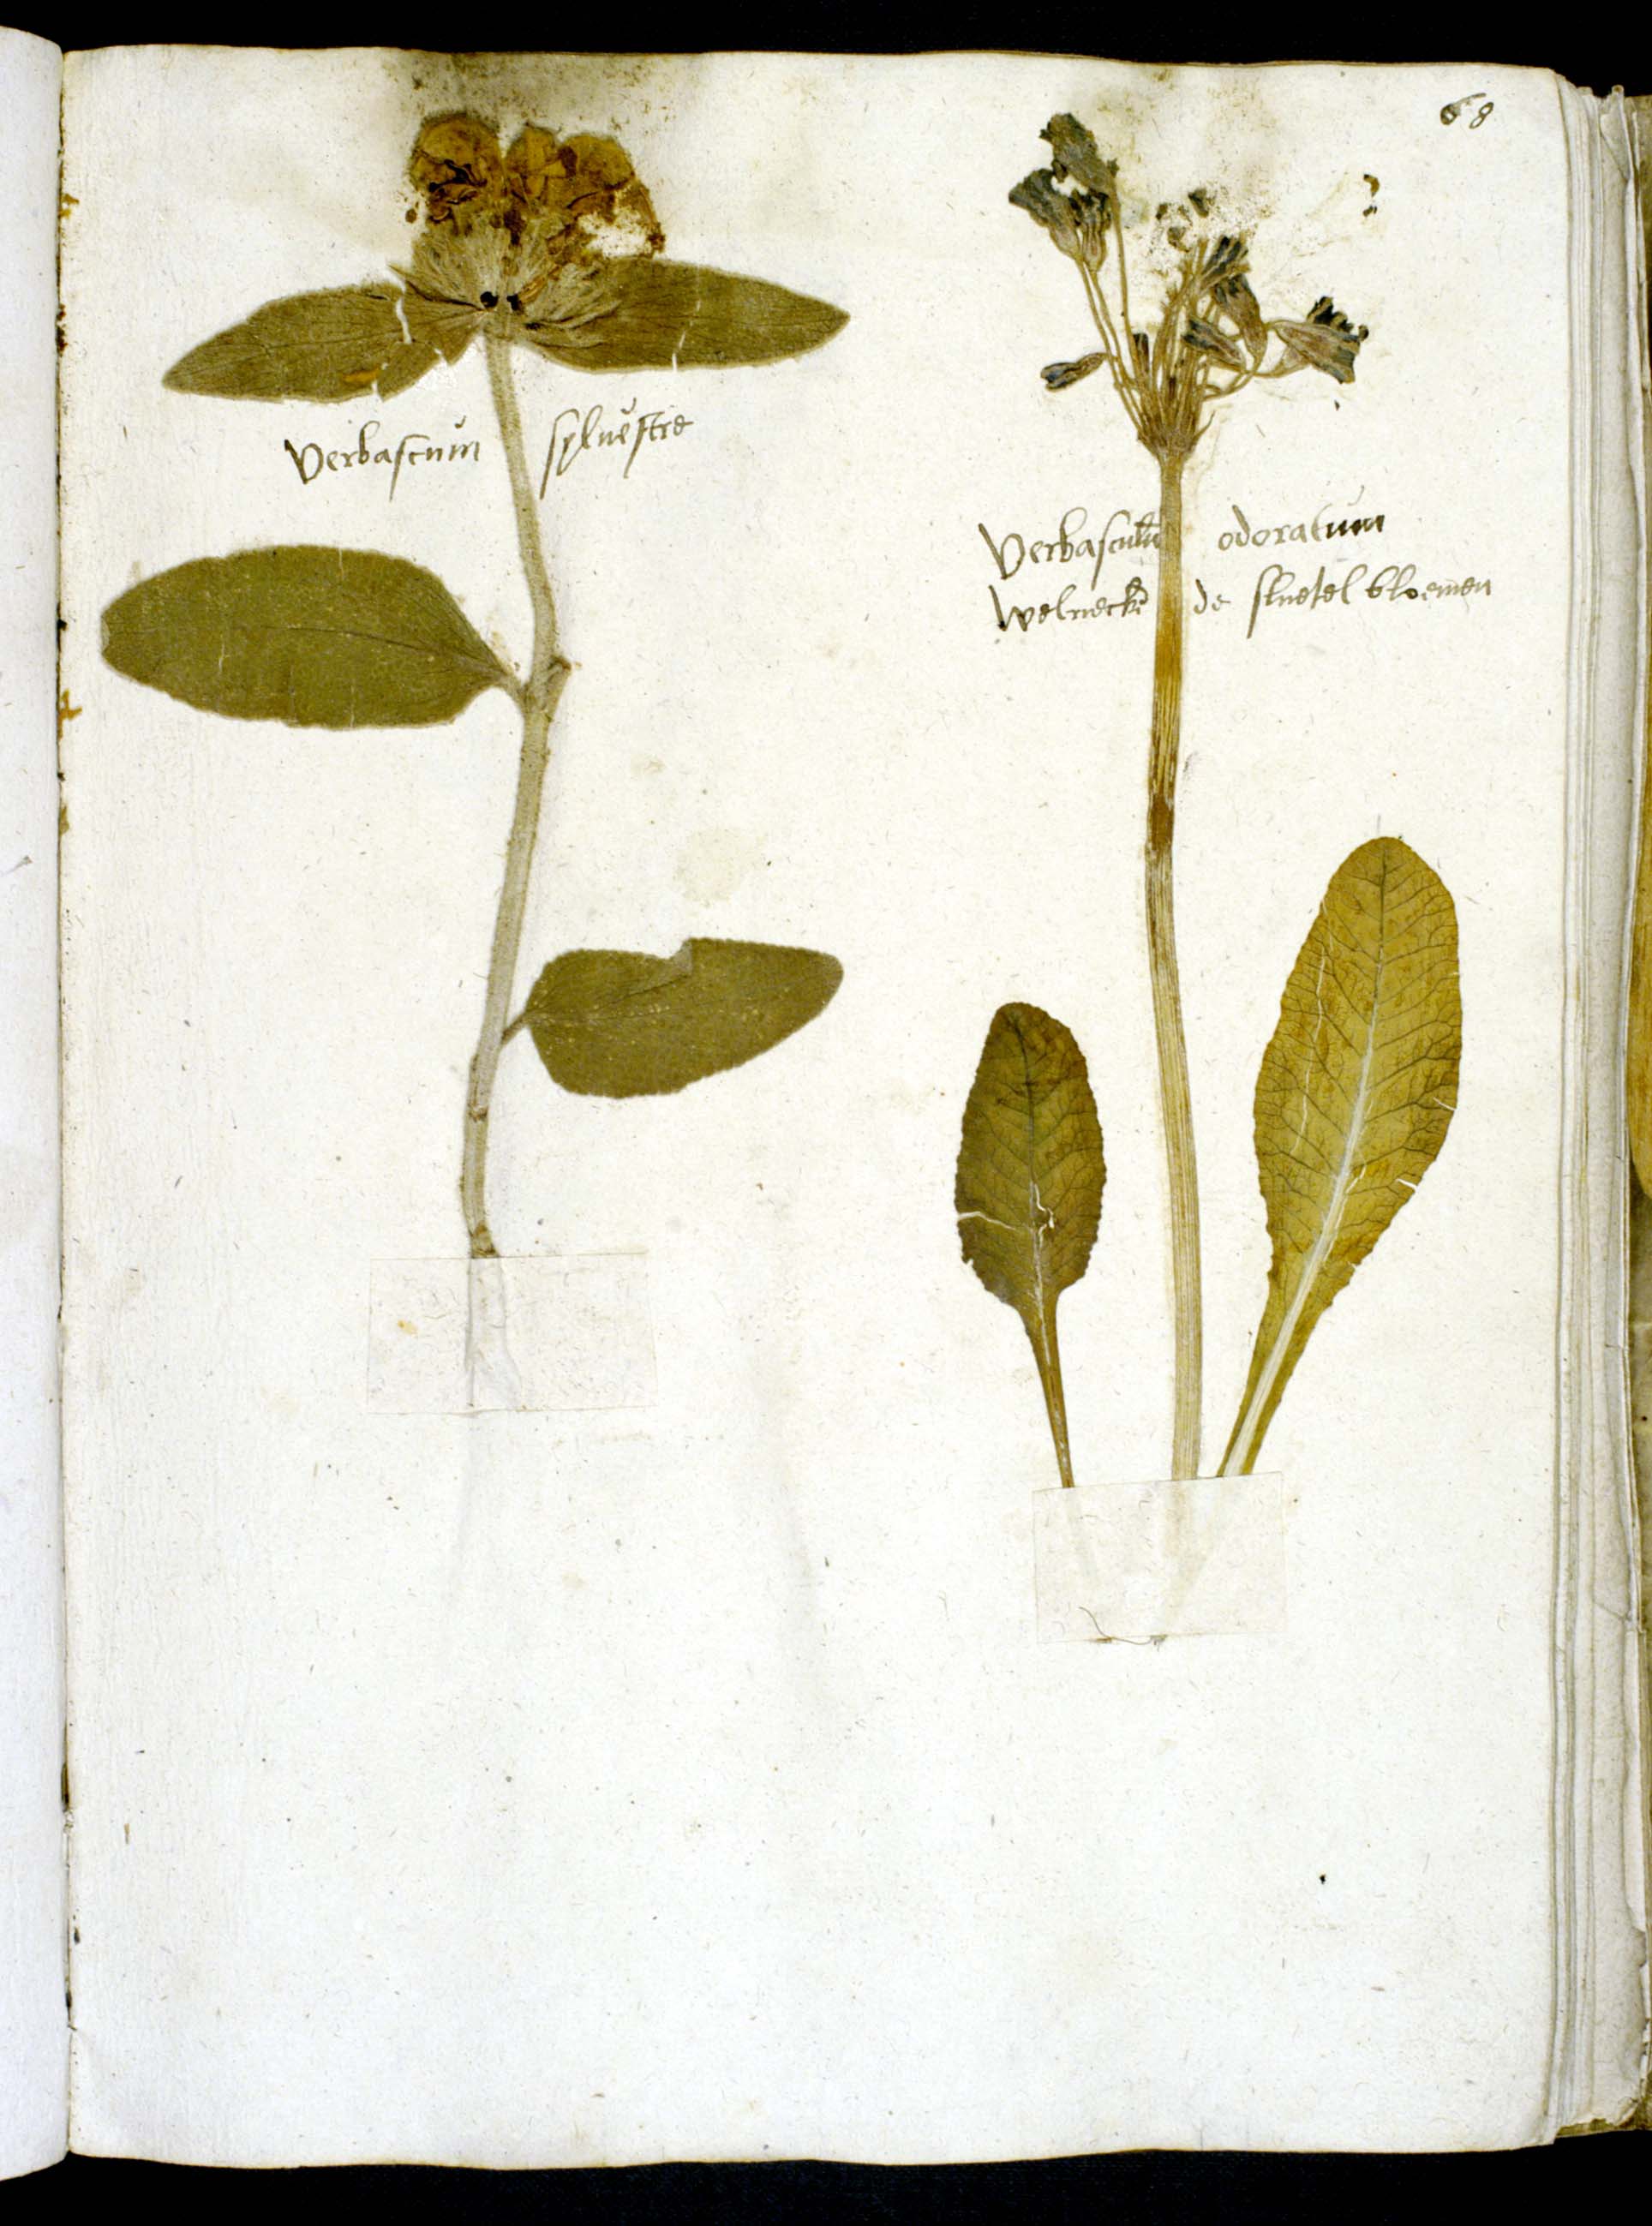 68
Verbascum sylvestre
Verbasculū odoratum
Welrieckēde sluetel bloemen